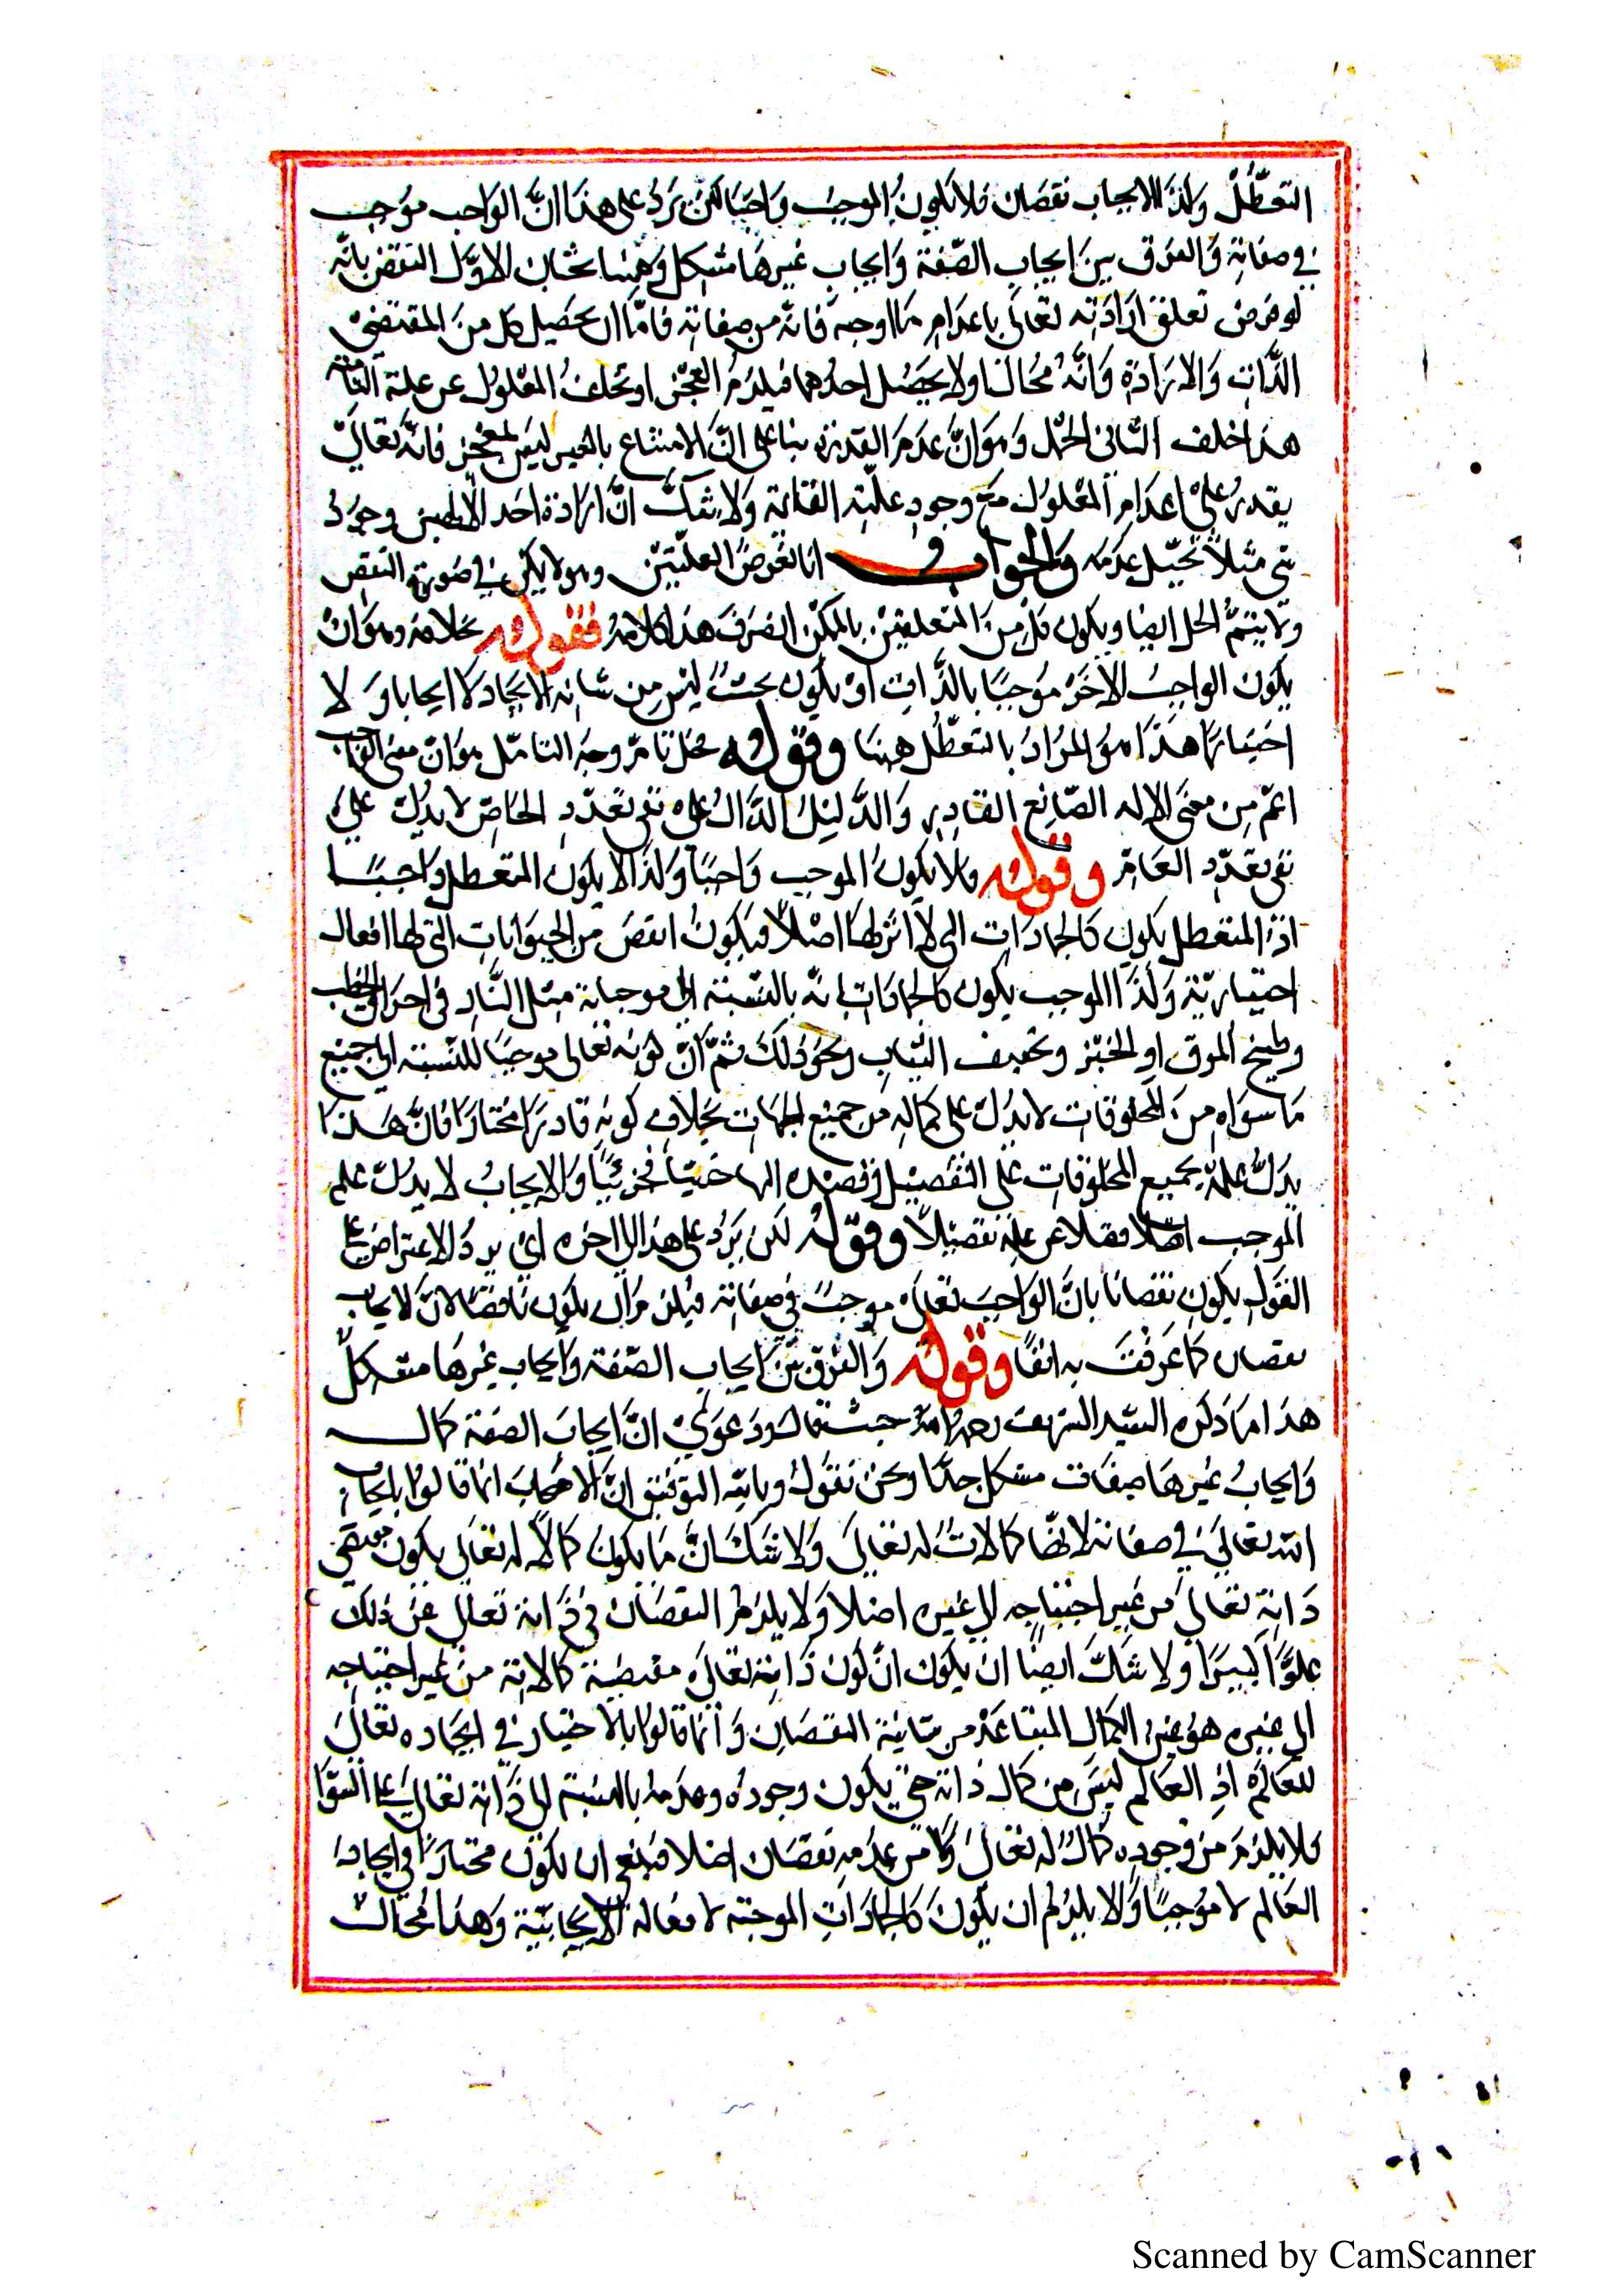 التعطل وكذا الايجاب نقصان فلا يكون الموجب واجبا لكن يرد على هذا ان الواجب موجب
في صفاته والفرق بين ايجاب الصفة وايجاب غيرها مشكل وههنا بحثان الاول النقض بانه
لو فرض تعلق ارادته تعالى باعدام ما اوجبه فانه من صفاته فاما ان يحصل كل من المقتضى
الذات والارادة وانه محال او لا يحصل احدهما فيلزم العجز او تخلف المعلول عن علته التامة
هذا خلف الثاني الحل وهو ان عدم القدرة بنا على ان الامتناع بالغير ليس بعجز فانه تعالى
يقدر على اعدام المعلول مع وجود علته التامة ولا شك ان ارادة احد الالهين وجود
شئ مثلا تحيل عدمه والجواب انا نفرض العلتين وهو لا يمكن في صورة النقض
ولا يتم الحل ايضا ويكون كل من المتعلقين بالممكن الصرف هذا كلامه فقوله بخلافه وهو ان
يكون الواجب الاخر موجبا بالذات او يكون بحيث ليس من شانه الايجاد لا ايجابا ولا
اختيارا هذا هو المراد بالتعطل ههنا وقوله محل تامل وجه التامل هو ان معنى الواجب
اعم من معنى الاله الصانع القادر والدليل الدال على نفي تعدد الخاص لا يدل على
نفي تعدد العام وقوله ولا يكون الموجب واجبا وكذا لا يكون المتعطل واجبا
اذ المتعطل يكون كالجمادات التي لا اثر لها اصلا فيكون انقص من الحيوانات التي لها افعال
اختيارية وكذا الموجب يكون كالجمادات بالنسبة الى موجباته مثل النار في احراق الحطب
وطبخ المرق او الخبز وتجفيف الثياب ونحو ذلك ثم ان كونه تعالى موجبا للنسبة الى جميع
ما سواه من المخلوقات لا يدل على كماله من جميع الجهات بخلاف كونه قادرا مختارا فان هذا
يدل على علمه بجميع المخلوقات على التفصيل وقصده اليها جزئيا فجزئيا والايجاب لا يدل على علم
الموجب اصلا فضلا عن علمه تفصيلا وقوله لكن يرد على هذا الى اخره اي يرد الاعتراض على
القول بكون نقصانا بان الواجب تعالى موجب في صفاته فيلزم ان يكون ناقصا لان الايجاب
نقصان كما عرفت به انفا وقوله والفرق بين ايجاب الصفة وايجاب غيرها مشكل
هذا ما ذكره السيد الشريف رحمه الله حيث قال ودعوى ان ايجاب الصفة كمال
وايجاب غيرها صفات مشكل جدا ونحن نقول وبالله التوفيق ان الاصحاب انما قالوا بايجاب
الله تعالى في صفاته لانها كمالات له تعالى ولا شك ان ما يكون كمالا له تعالى يكون مقتضى
ذاته تعالى من غير احتياجه الى غيره اصلا ولا يلزم النقصان في ذاته تعالى عن ذلك
علوا كبيرا ولا شك ايضا ان يكون ان كون ذاته تعالى مقتضية كمالاته من غير احتياجه
الى غيره هو عين الكمال المتباعد من شايبة النقصان وانما قالوا بالاختيار في ايجاده تعالى
للعالم اذ العالم ليس من كمال ذاته حتى يكون وجوده وعدمه بالنسبة الى ذاته تعالى على السوا
فلا يلزم من وجوده كمال له تعالى ولا من عدمه نقصان اصلا فينبغي ان يكون مختارا في ايجاده
العالم لا موجبا والا يلزم ان يكون كالجمادات الموجبة لافعاله الايجابية وهذا محال
Scanned by CamScanner